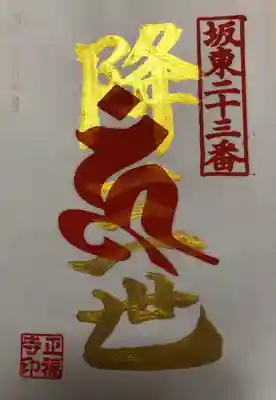 坂東二十三番
降三世
正福寺印